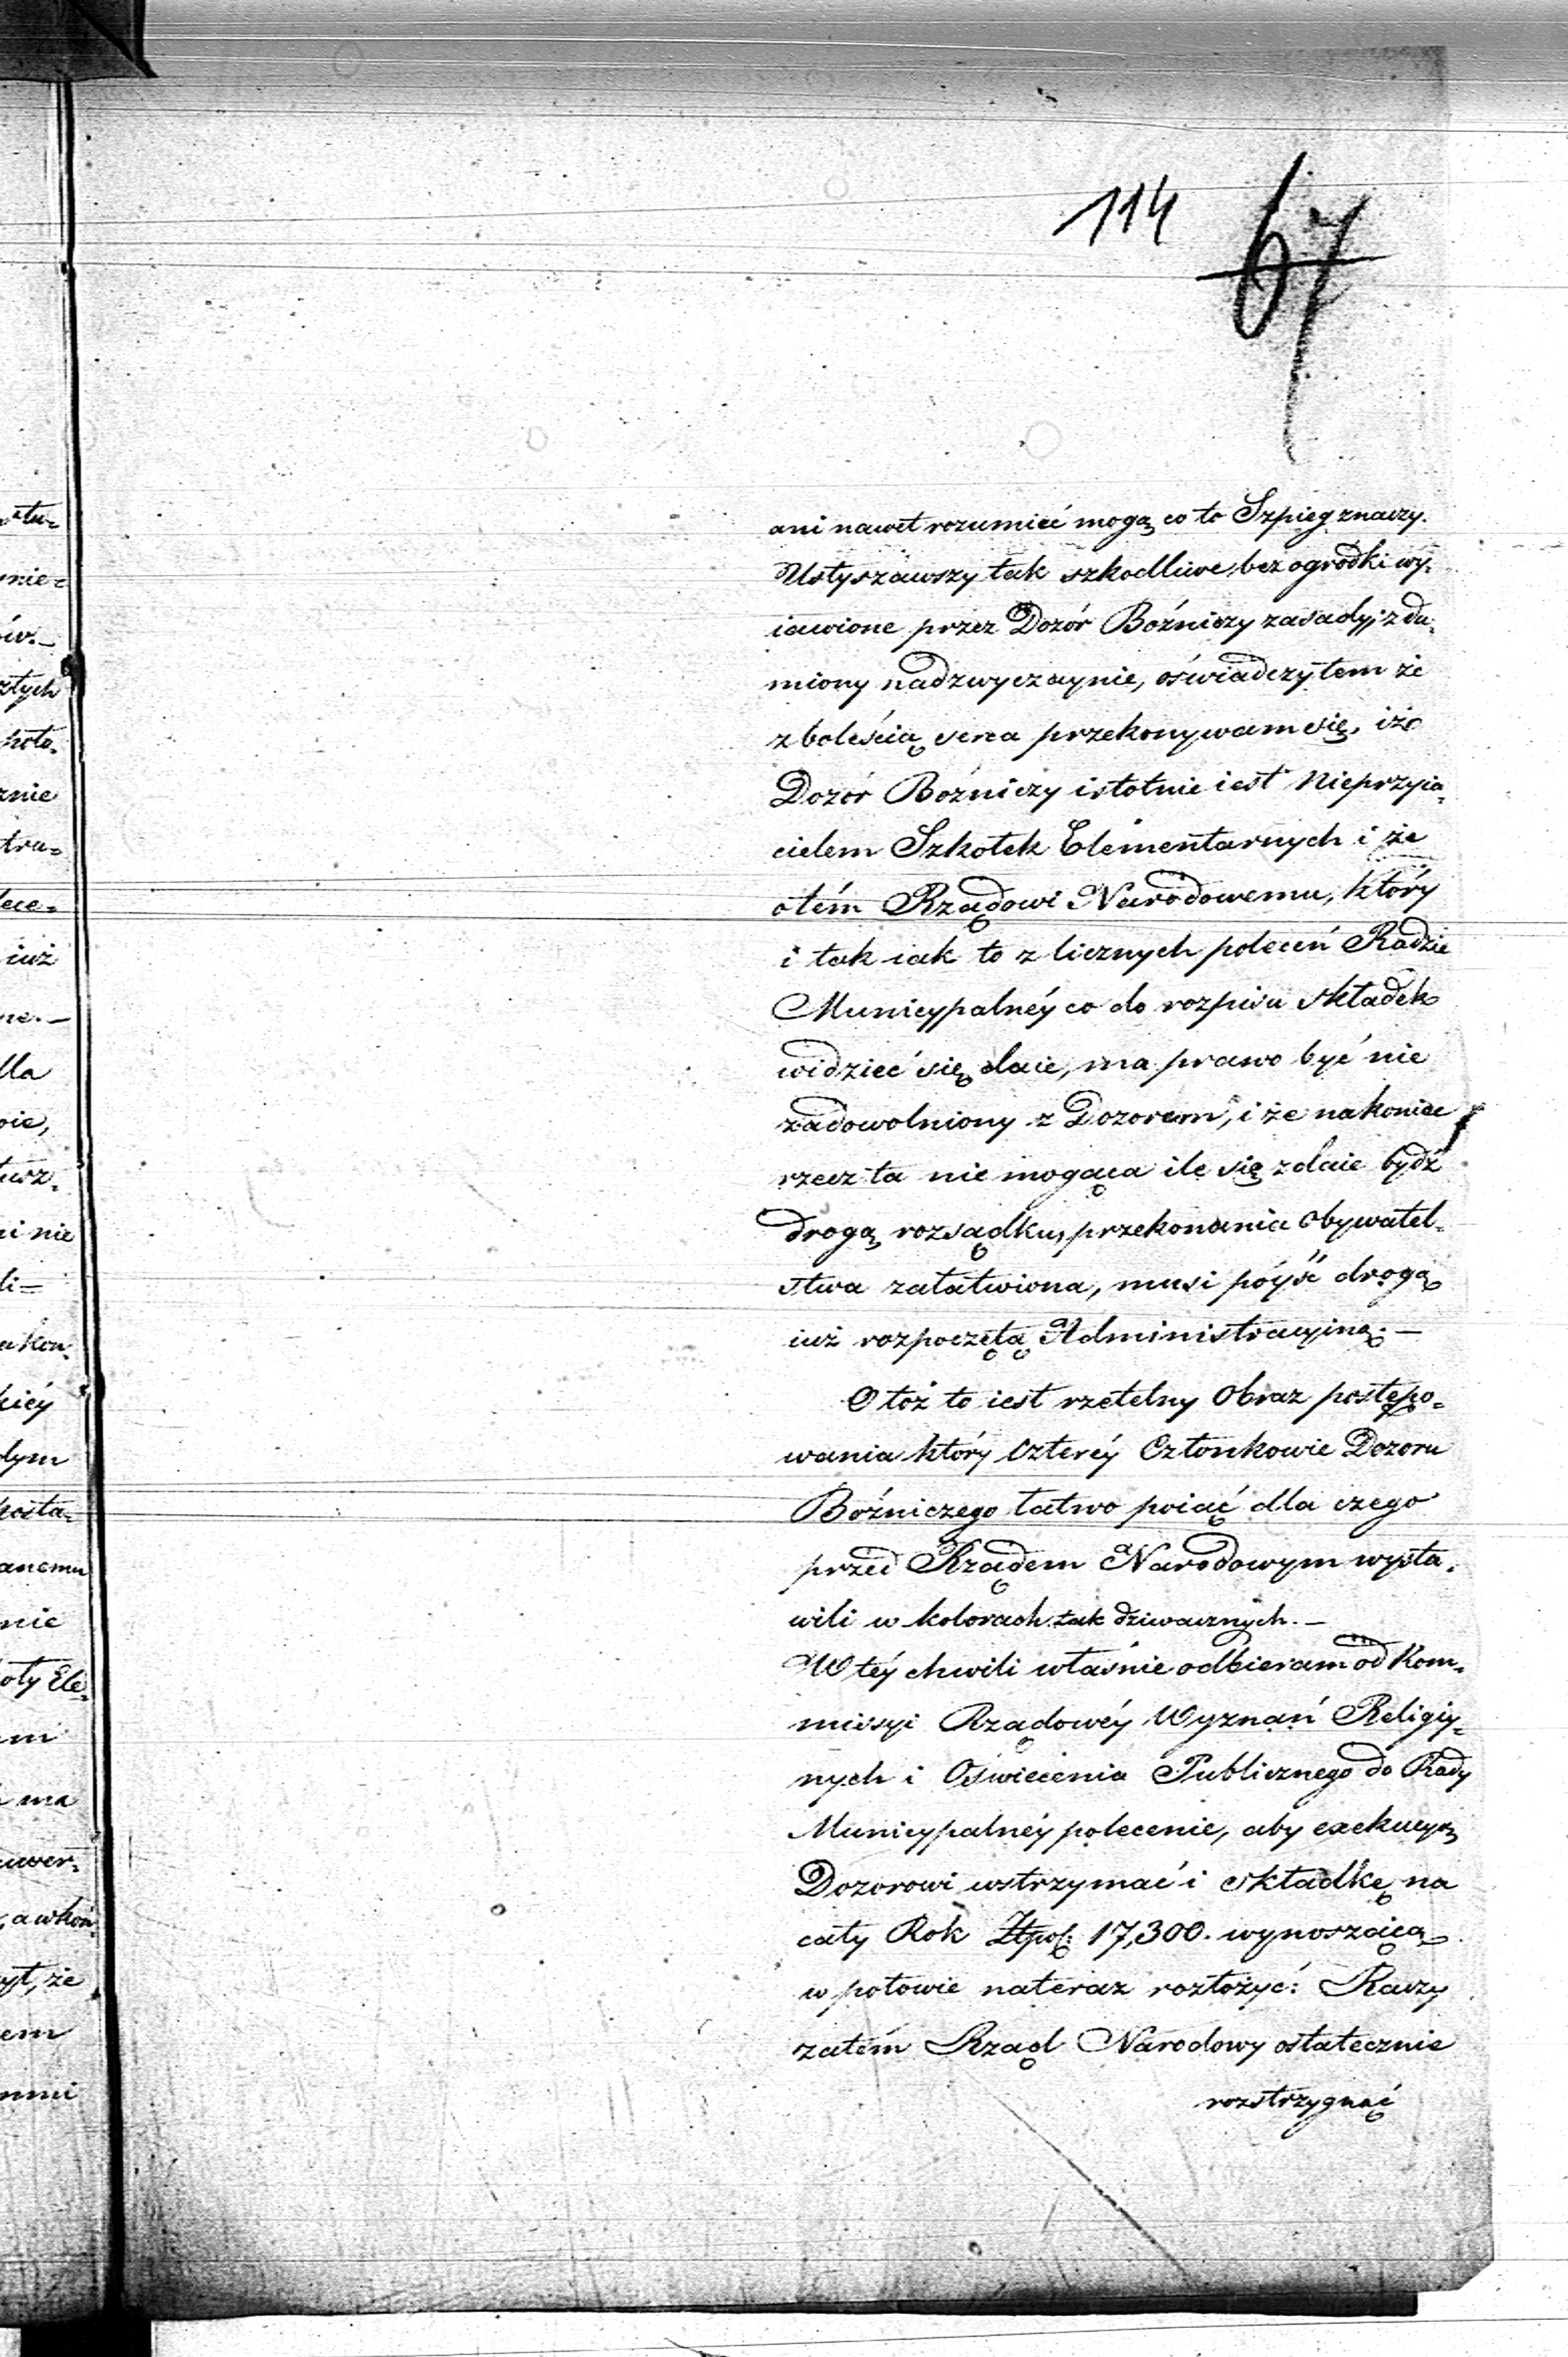 114 67
ani nawet rozumieć mogą co to Szpieg znaczy.
Usłyszawszy tak szkodliwe, bez ogrodki wy-
iawione przez Dozór Bożniczy zasady, zdu-
miony nadzwyczaynie, oświadczyłem że
z boleścią serca przekonywam się, iż
Dozór Bożniczy istotnie iest Nieprzyia-
cielem Szkołek Elementarnych i że
o tém Rządowi Narodowemu, który
i tak iak to z licznych poleceń Radzie
Municypalnéy co do rozpisu składek
widzieć się daie, ma prawo być nie
zadowolniony z Dozorem, i że nakoniec
rzecz ta nie mogąca ile się zdaie bydź
drogą rozsądku, przekonania Obywatel-
stwa załatwiona, musi póyść drogą
iuż rozpoczętą Administracyiną. —
Otóż to iest rzetelny Obraz postępo-
wania który Czteréy Członkowie Dozoru
Bożniczego łatwo poiąć dla czego
przed Rządem Narodowym wysta-
wili w kolorach tak dziwacznych. —
W téy chwili właśnie odbieram od Kom-
missyi Rządowéy Wyznań Religiy-
nych i Oświecenia Publicznego do Rady
Municypalnéy polecenie, aby exekucyą
Dozorowi wstrzymać i składkę na
cały Rok Złpol: 17,300. wynoszącą
w połowie nateraz rozłożyć: Raczy
zatém Rząd Narodowy ostatecznie
rozstrzygnąć